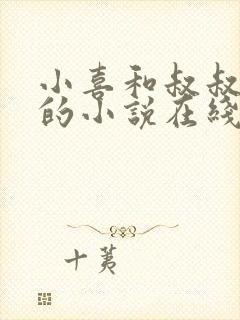 小喜和叔叔
的小說在綫
十荑